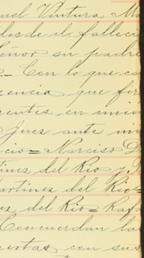 uel Ventura, Ma
desde el falleci
eñor su padre
= Con lo que co
cencia que fir
entes en
Juez ante mi
cio= Narciso D
ines del Rio
artines del Rio=
es del Rio= Rafa
Concuerdan la
critas con sus